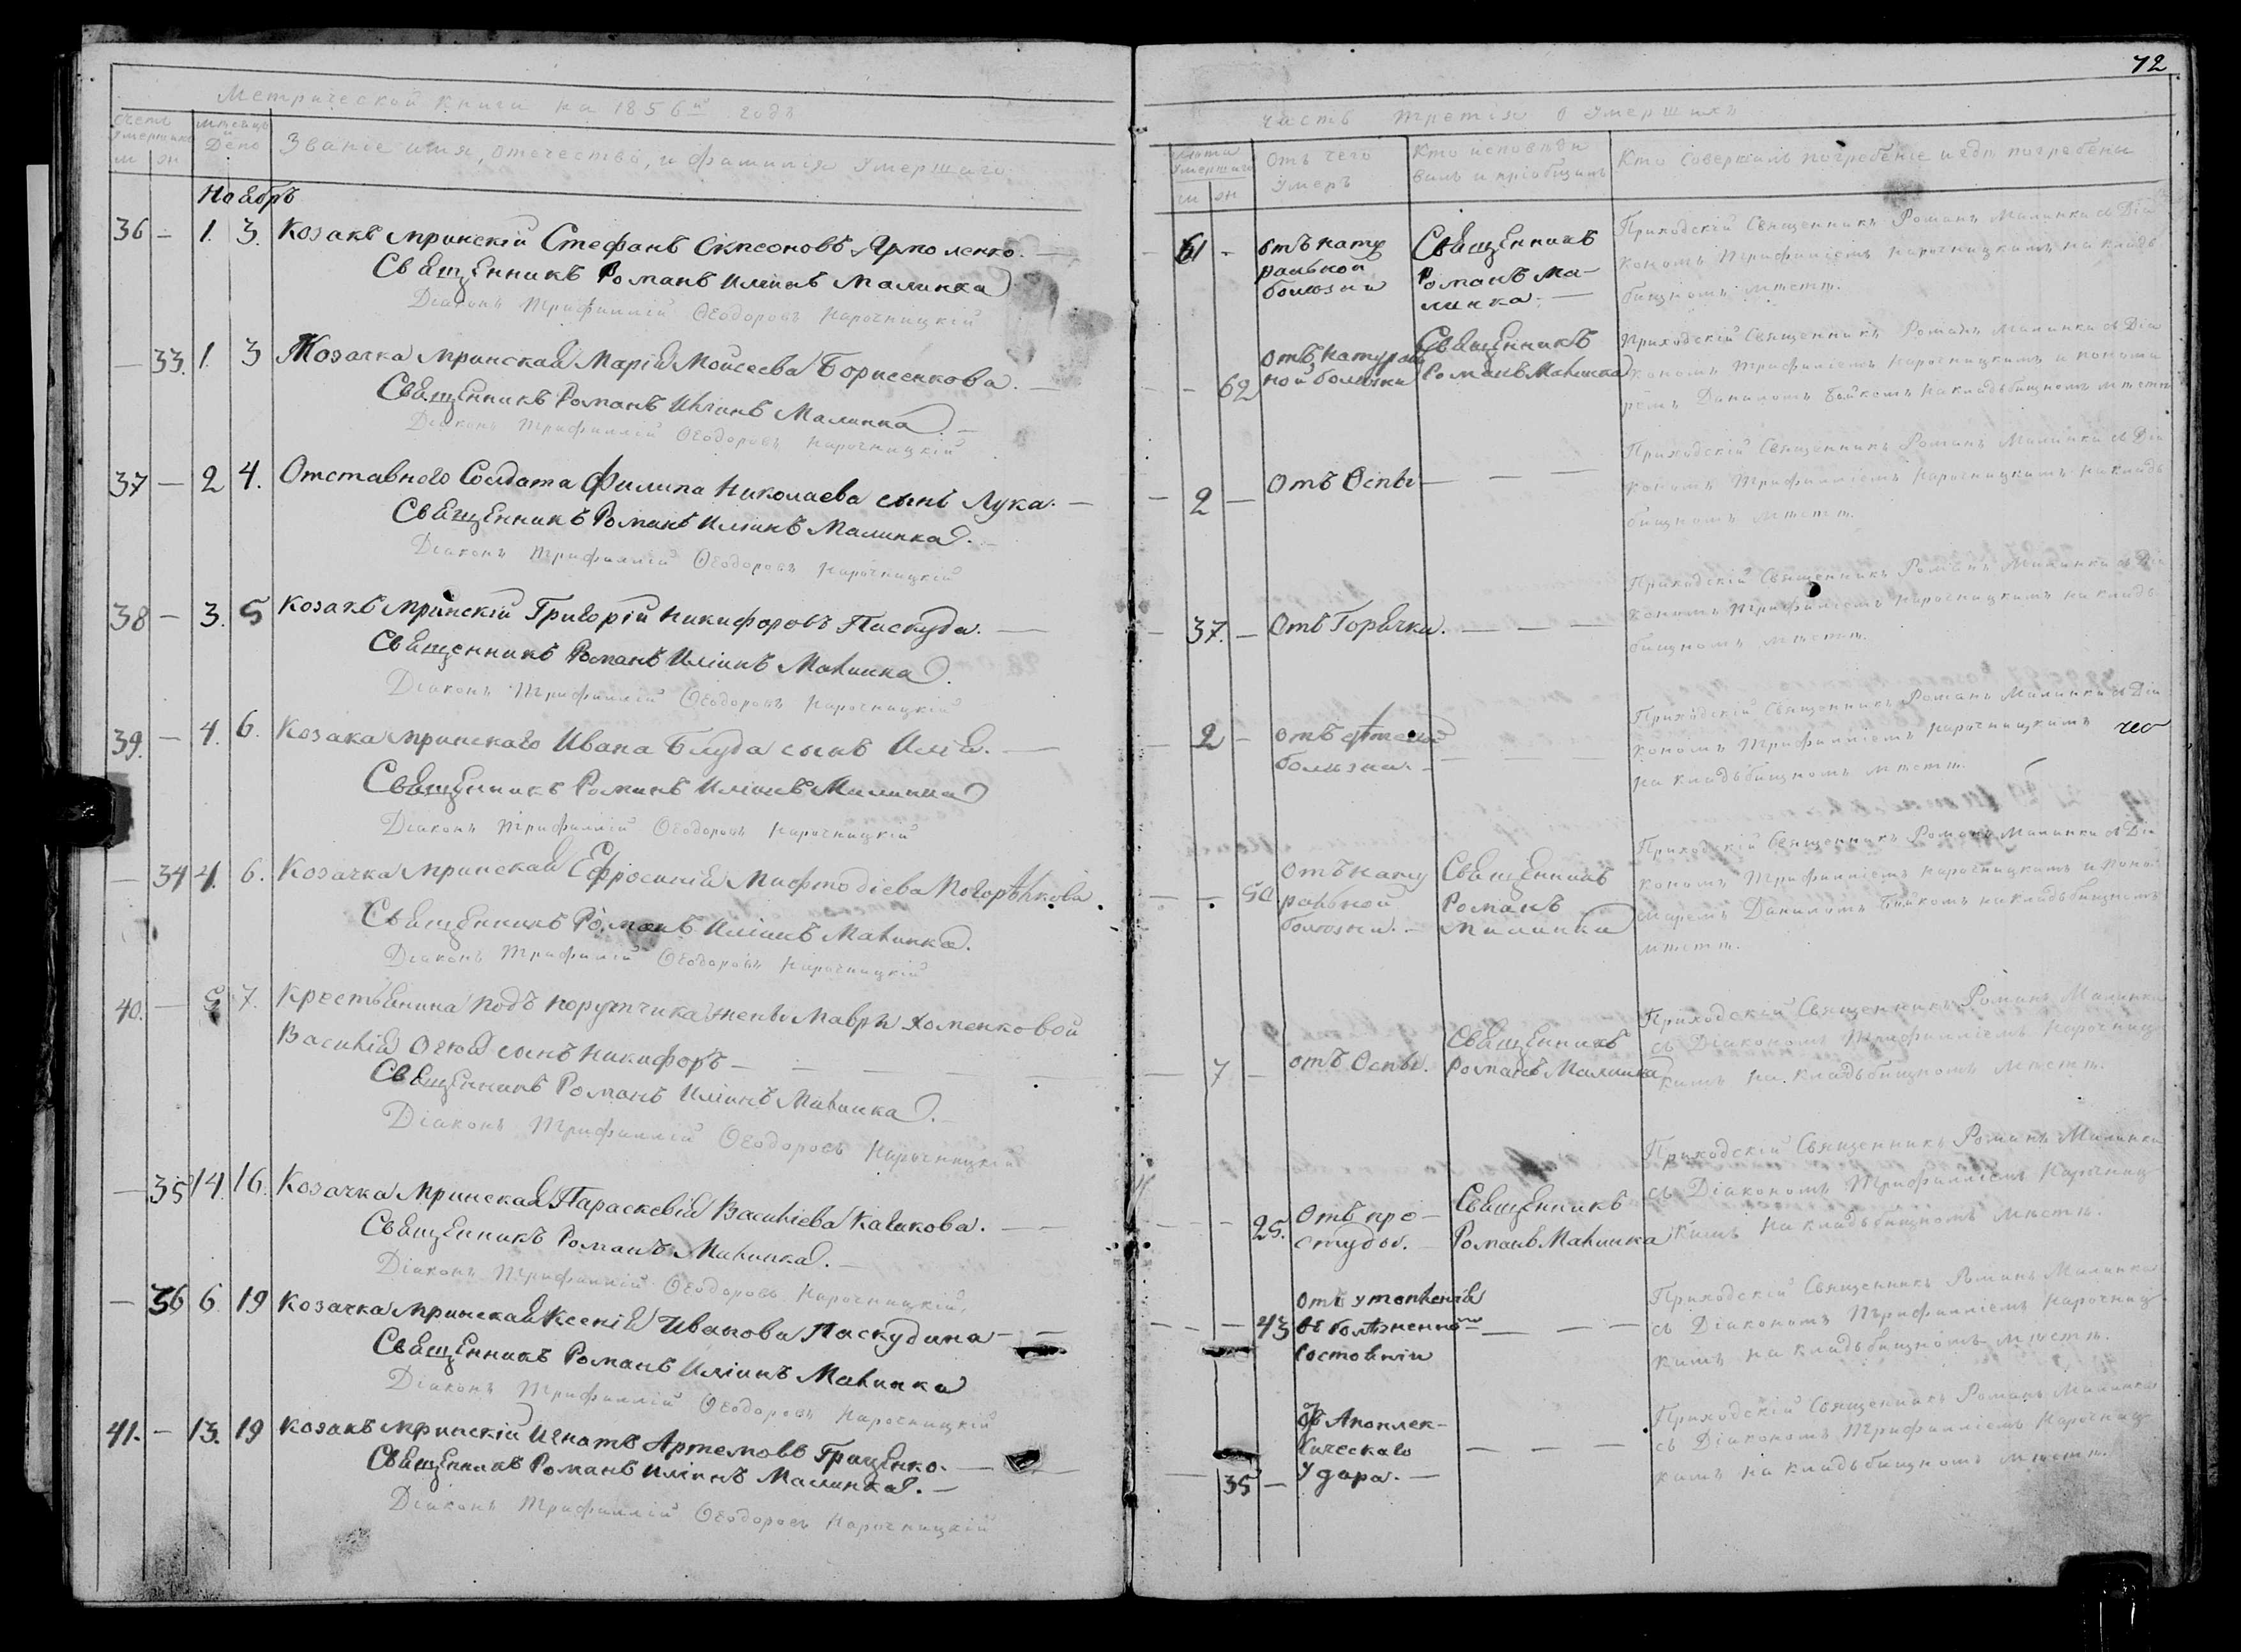 72
Метрической книги на 1856й годъ
Часть третія о умершихъ
Счетъ умершихъ
Мѣсяцъ и День
Званіе имя, отечество, и фамилія умершаго
м ж
Лѣта умершаго
Отъ чего умеръ
Кто исповѣдывалъ и пріобщалъ
Кто совершалъ погребеніе и гдѣ погребены
м ж
Ноябрь
36 — 1. 3. Козакъ Мринскій Стефанъ Ярмоленко. —
Священникъ Романъ Иліинъ Малинка
Діаконъ Трифиллій Ѳеодоровъ Нарочницкій
61 — отъ нату
ральной
болѣзни
Священникъ
Романъ Ма-
линка. —
Приходскій Священникъ Романъ Малинка съ Діа
кономъ Трифилліемъ Нарочницкимъ на кладь
бищномъ мѣстѣ.
— 33. 1. 3 Козачка Мринская Марія Моисеева Борисенкова. —
Священникъ Романъ Иліинъ Малинка. —
Діаконъ Трифиллій Ѳеодоровъ Нарочницкій
— 62 отъ натураль
ной болѣзни
Священникъ
Романъ Малинка
Приходскій Священникъ Романъ Малинка съ Діа
кономъ Трифилліемъ Нарочницкимъ и понома
ремъ Даниломъ Бойкомъ на кладьбищномъ мѣстѣ
37 — 2 4. Отставного Солдата Филипа Николаева сынъ Лука. —
Священникъ Романъ Иліинъ Малинка. —
Діаконъ Трифиллій Ѳеодоровъ Нарочницкій
— 2 — Отъ Оспы — — —
Приходскій Священникъ Романъ Малинка съ Діа
кономъ Трифилліемъ Нарочницкимъ на кладь
бищномъ мѣстѣ.
38 — 3. 5 Козакъ Мринскій Григорій Никифоровъ Паскуда. —
Священникъ Романъ Иліинъ Малинка.
Діаконъ Трифиллій Ѳеодоровъ Нарочницкій
— 37. — Отъ Горячки. — — —
Приходскій Священникъ Романъ Малинка съ Діа
кономъ Трифилліемъ Нарочницкимъ на кладь
бищномъ мѣстѣ.
39. — 4. 6. Козака Мринскаго Ивана Блуда сынъ Илія. —
Священникъ Романъ Иліинъ Малинка
Діаконъ Трифиллій Ѳеодоровъ Нарочницкій
— 2 — отъ
болѣзни. — — — —
Приходскій Священникъ Романъ Малинка съ Діа
кономъ Трифилліемъ Нарочницкимъ
на кладьбищномъ мѣстѣ.
— 34 4. 6. Козачка Мринская Ефросинія Мифтодіева Погорѣлкова.
Священникъ Романъ Иліинъ Малинка.
Діаконъ Трифиллій Ѳеодоровъ Нарочницкій
— 50 Отъ нату
ральной
болѣзни. —
Священникъ
Романъ
Малинка
Приходскій Священникъ Романъ Малинка съ Діа
кономъ Трифилліемъ Нарочницкимъ и поно
маремъ Даниломъ Бойкомъ на кладьбищномъ
мѣстѣ.
40. — 5 7. Крестьянина подъ порутчика жены Мавры Хоменковой
Василія сынъ Никифоръ — — — —
Священникъ Романъ Иліинъ Малинка. —
Діаконъ Трифиллій Ѳеодоровъ Нарочницкій
— 7 — отъ Оспы.
Священникъ
Романъ Малинка
Приходскій Священникъ Романъ Малинка
съ Діакономъ Трифилліемъ Нарочниц
кимъ на кладьбищномъ мѣстѣ.
— 35 14. 16. Козачка Мринская Параскевія Василіева Кашкова. —
Священникъ Романъ Малинка. —
Діаконъ Трифиллій Ѳеодоровъ Нарочницкій.
— 25. Отъ про-
студы. —
Священникъ
Романъ Малинка
Приходскій Священникъ Романъ Малинка
съ Діакономъ Трифилліемъ Нарочниц
кимъ на кладьбищномъ мѣстѣ.
— 36 6 19 Козачка Мринская Ксенія Иванова Паскудина — —
Священникъ Романъ Иліинъ Малинка
Діаконъ Трифиллій Ѳеодоровъ Нарочницкій
— 43 Отъ утопленія
въ болѣзненномъ
состояніи — — —
Приходскій Священникъ Романъ Малинка
съ Діакономъ Трифилліемъ Нарочниц
кимъ на кладьбищномъ мѣстѣ.
41. — 13. 19 Козакъ Мринскій Игнатъ Артемовъ Гриценко. —
Священникъ Романъ Иліинъ Малинка. —
Діаконъ Трифиллій Ѳеодоровъ Нарочницкій
— 35 — Отъ Апоплек-
сическаго
удара. — — — —
Приходскій Священникъ Романъ Малинка
съ Діакономъ Трифилліемъ Нарочниц
кимъ на кладьбищномъ мѣстѣ.